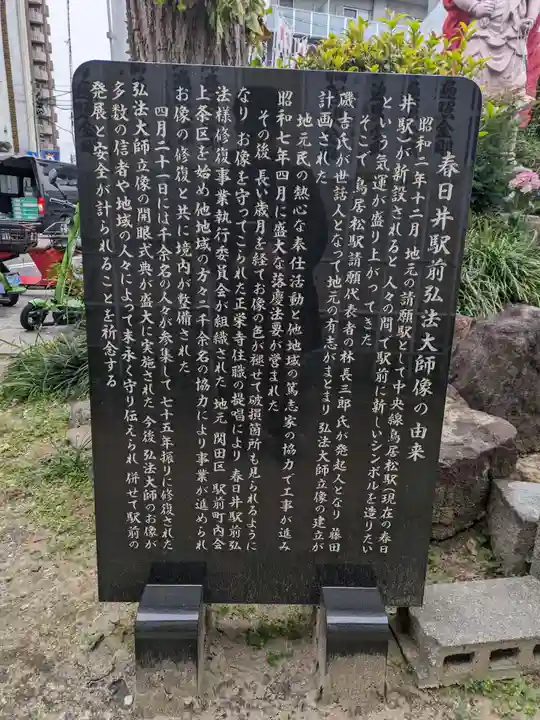 春日井駅前弘法大師像の由来
昭和二年十二月 地元の請願駅として中央線鳥居松駅(現在の春日
井駅)が新設されると 人々の間で駅前に新しいシンボルを造りたい
という気運が盛り上がってきた
そこで 鳥居松駅請願代表者の林長三郎氏が発起人となり 藤田
磯吉氏が世話人となって地元の有志がまとまり 弘法大師立像の建立が
計画された
地元民の熱心な奉仕活動と他地域の篤志家の協力で工事が進み
昭和七年四月に盛大な落慶法要が営まれた
その後 長い歳月を経てお像の色が褪せて破損箇所も見られるように
なり お像を守ってこられた正栄寺住職の提唱により 春日井駅前弘
法様修復事業執行委員会が組織された 地元 関田区 駅前町内会
上条区を始め他地域の方々二千余名の協力により事業が進められ
お像の修復と共に境内が整備された
四月二十一日には千余名の人々が参集して七十五年振りに修復された
弘法大師立像の開眼式典が盛大に実施された 今後 弘法大師のお像が
多数の信者や地域の人々によって末永く守り伝えられ 併せて駅前の
発展と安全が計られることを祈念する